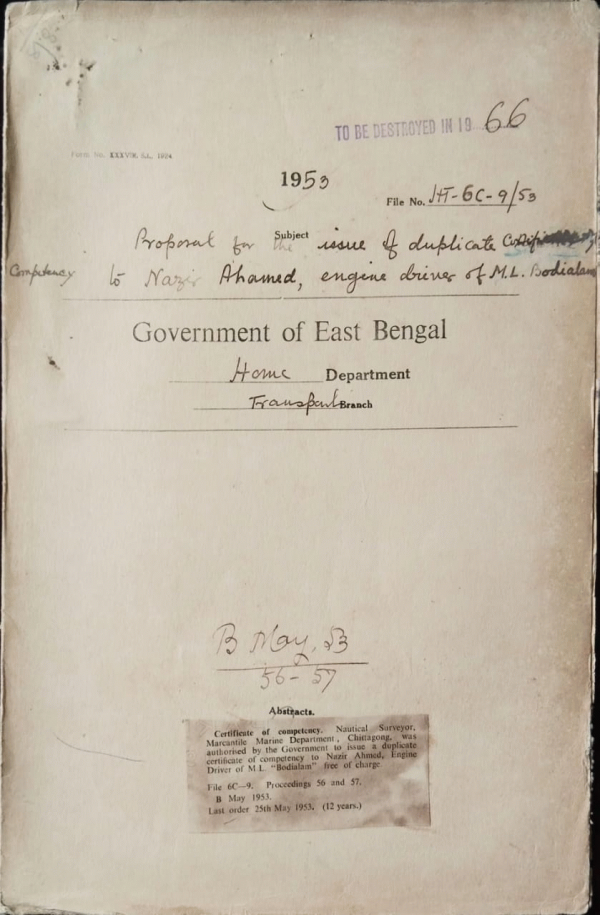 TO BE DESTROYED IN 19 66
Form No. XXXVIII
1953
File No. HT-6C-9/53
Subject
Proposal for the issue of duplicate
Competency to Nazir Ahamed, engine driver of M.L. Bodialam
Government of East Bengal
Home Department
Transport Branch
B May, 53
56-57
Abstracts.
Certificate of competency. Nautical Surveyor,
Marcantile Marine Department, Chittagong, was
authorised by the Government to issue a duplicate
certificate of competency to Nazir Ahmed, Engine
Driver of M L "Bodialam" free of charge
File 6C—9. Proceedings 56 and 57.
B May 1953.
Last order 25th May 1953. (12 years.)